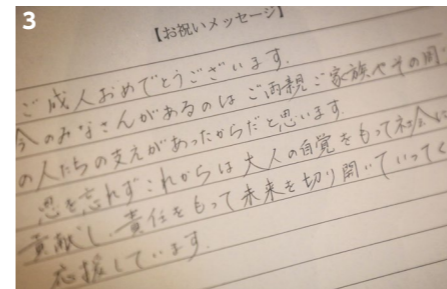 3
【お祝いメッセージ】
ご成人おめでとうございます.
今のみなさんがあるのは ご両親 ご家族やその周
の人たちの支えがあったからだと思います.
恩を忘れず これからは 大人の自覚をもって社会に
貢献し、責任をもって未来を切り開いていってく
応援しています.